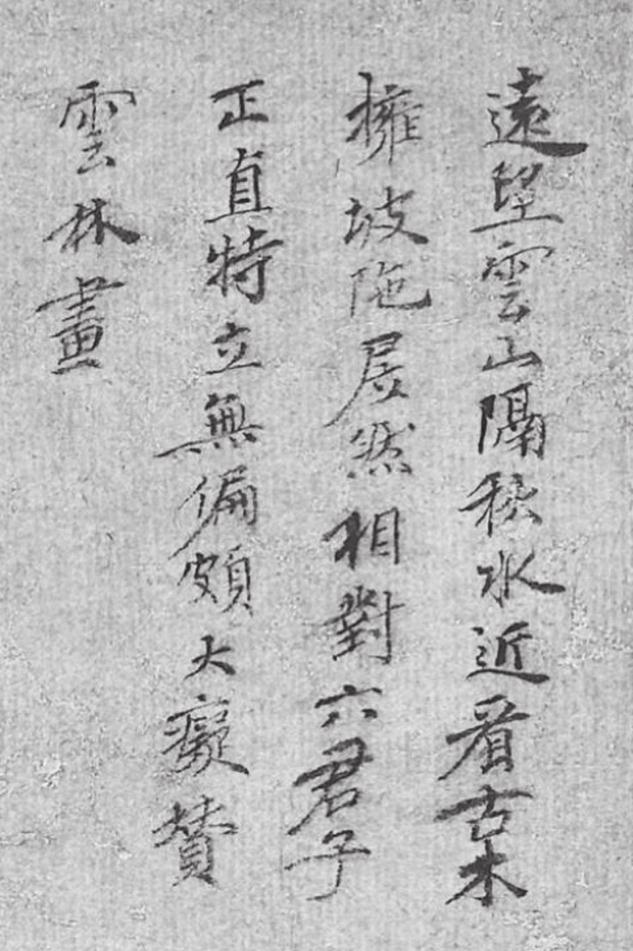 遠望雲山隔秋水近看古木
擁坡陁居然相對六君子
正直特立無偏頗大癡贊
雲林畫